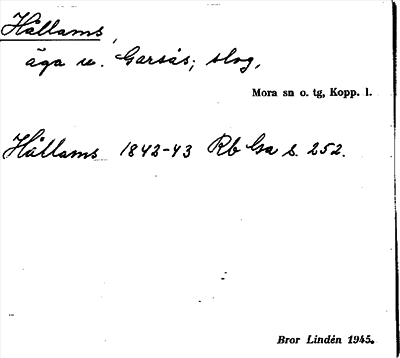 Hållams,
äga u. Garsås; slog,
Mora sn o. tg, Kopp. l.
Hållams 1842-43 Rb Gsa s. 252.
Bror Lindén 1945.